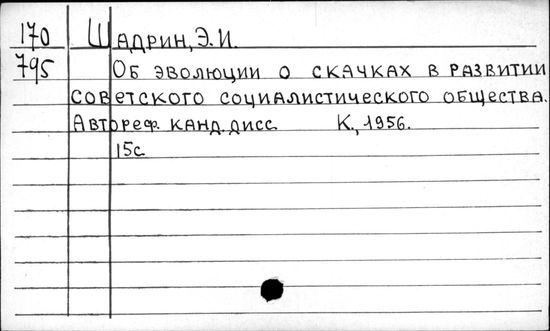 170 Шадрин, Э.И.
795 Об эволюции о скачках в развитии
советского социалистического общества.
Автореф. канд. дисс. К., 1956.
15с.